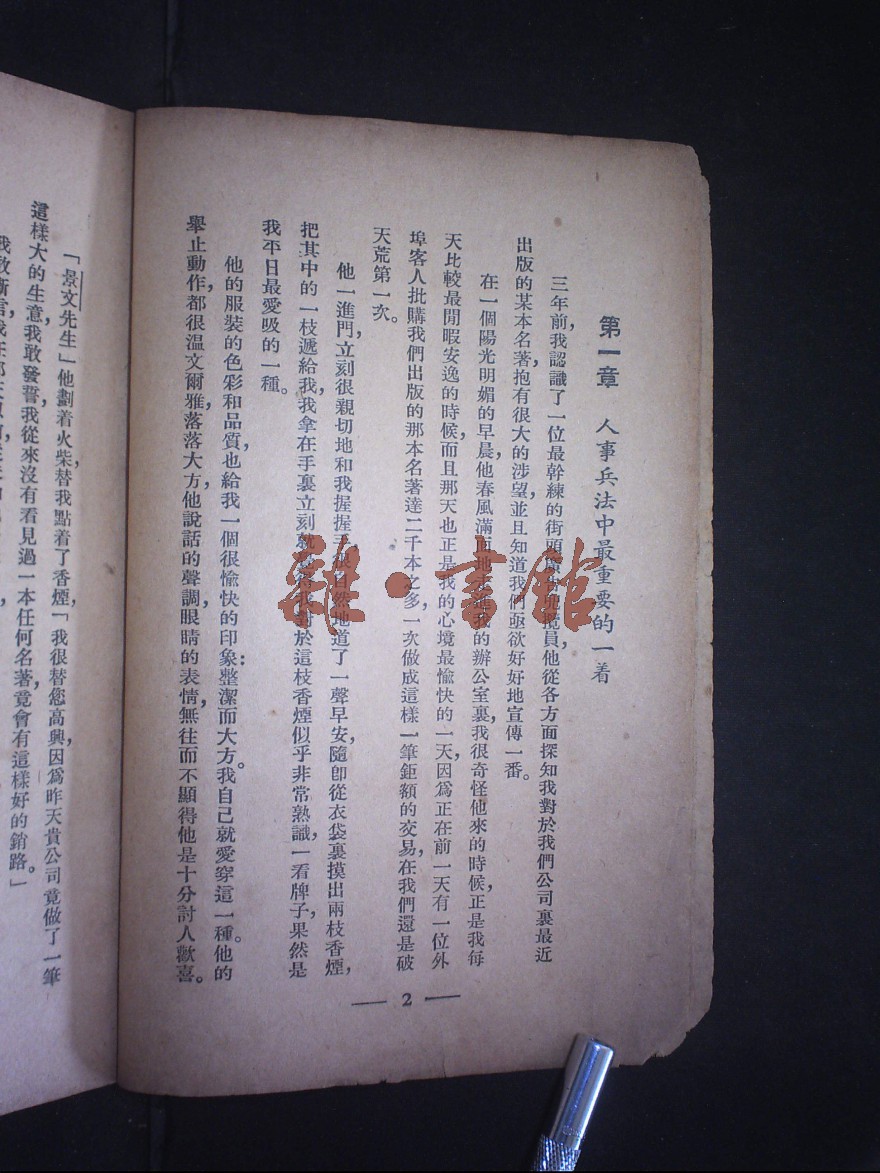 第一章　人事兵法中最重要的一着
三年前，我認識了一位最幹練的街頭兜攬員，他從各方面探知我對於我們公司裏最近
出版的某本名著，抱有很大的涉望，並且知道我們亟欲好好地宣傳一番。
在一個陽光明媚的早晨，他春風滿面地走進我的辦公室裏，我很奇怪他來的時候，正是我每
天比較最閒暇安逸的時候，而且那天也正是我的心境最愉快的一天，因爲正在前一天有一位外
埠客人批購我們出版的那本名著達二千本之多，一次做成這樣一筆鉅額的交易，在我們還是破
天荒第一次。
他一進門，立刻很親切地和我握握手，很自然地道了一聲早安，隨卽從衣袋裏摸出兩枝香煙，
把其中的一枝遞給我，我拿在手裏，立刻就覺得我對於這枝香煙似乎非常熟識，一看牌子，果然是
我平日最愛吸的一種。
他的服裝的色彩和品質，也給我一個很愉快的印象：整潔而大方。我自己就愛穿這一種。他的
舉止動作都很溫文爾雅，落落大方，他說話的聲調，眼睛的表情，無往而不顯得他是十分討人歡喜。
— 2 —
「景文先生」他劃着火柴，替我點着了香煙，「我很替您高興，因爲昨天貴公司竟做了一筆
這樣大的生意，我敢發誓，我從來沒有看見過一本任何名著，竟會有這樣好的銷路。」
我敢斷言
雜·書館